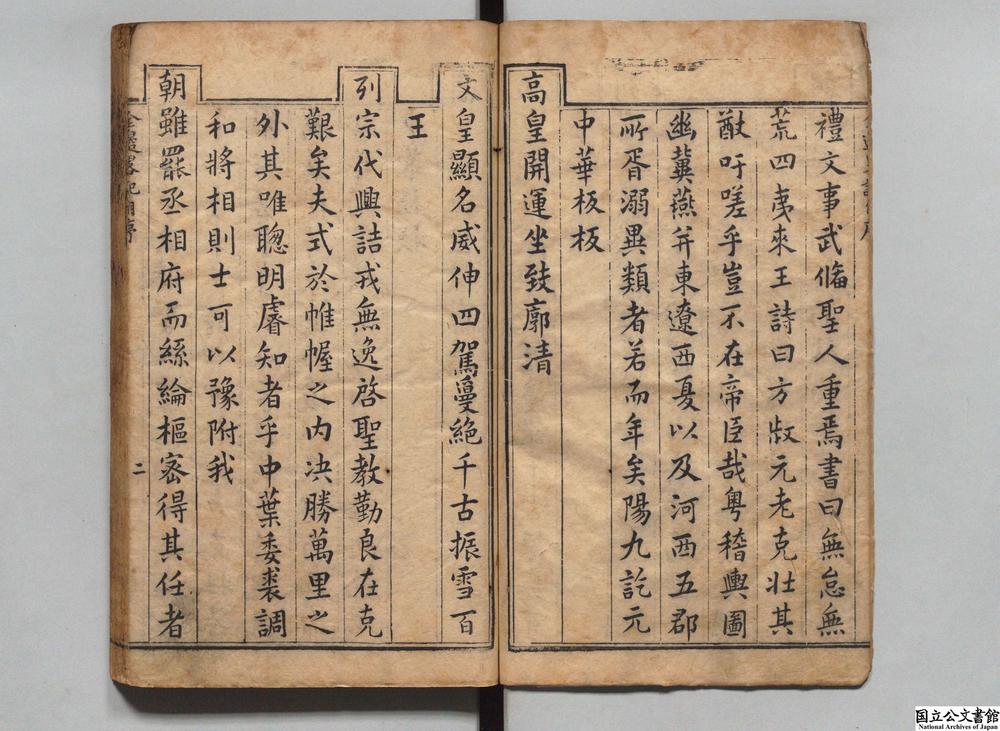 禮文事武偹聖人重焉書曰無怠無
荒四夷來王詩曰方叔元老克壯其
猷吁嗟乎豈不在帝臣哉粤稽輿圖
幽冀燕并東遼西夏以及河西五郡
所胥溺異類者若而年矣陽九訖元
中華板板
高皇開運坐致廓清
文皇顯名威伸四駕敻絶千古振雪百
王
列宗代興詰戎無逸啓聖教勤良在克
艱矣夫式於帷幄之内决勝萬里之
外其唯聰明睿知者乎中葉委裘調
和將相則士可以豫附我
朝雖罷丞相府而絲綸樞宻得其任者
二
国立公文書館
National Archives of Japan